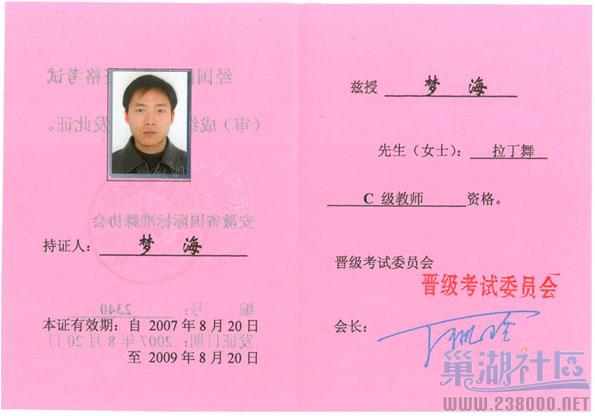 经国
格考试
（审）成
发此证。
安徽省国际标准舞协会
持证人：梦 海
编 号： 2340
本证有效期：自 2007年8月20日
发证日期：2007年8月20日
至 2009年8月20日
兹授 梦 海
先生（女士）： 拉丁舞
C 级教师 资格。
晋级考试委员会
晋级考试委员会
会长：
巢湖社区
www.238000.net